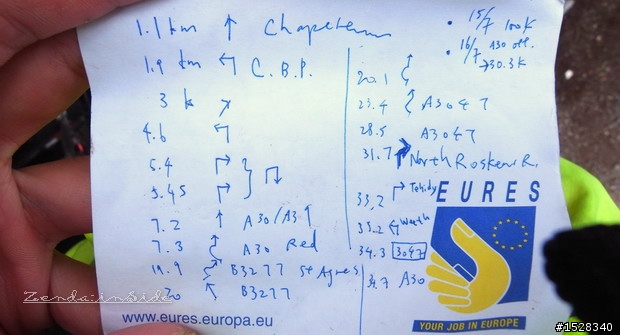 1.1 km ↑
1.9 km ↰ C.B.P.
3 k
4.6 ↰
5.4 ↱
5.45 ↱
7.2 ↑ A30/A39
7.3 A30 Red
B3277 St Agnes
20 B3277
• 15/7 100K
• 16/7 A30 off.
→30.3 K
20.1
23.4 A3047
28.5 A3047
31.7 North Roskear R.
33,2 ↱ Tehidy
33.2
34.3 3047
34.7 A30
EURES
YOUR JOB IN EUROPE
www.eures.europa.eu
Zenda:inside
#1528340